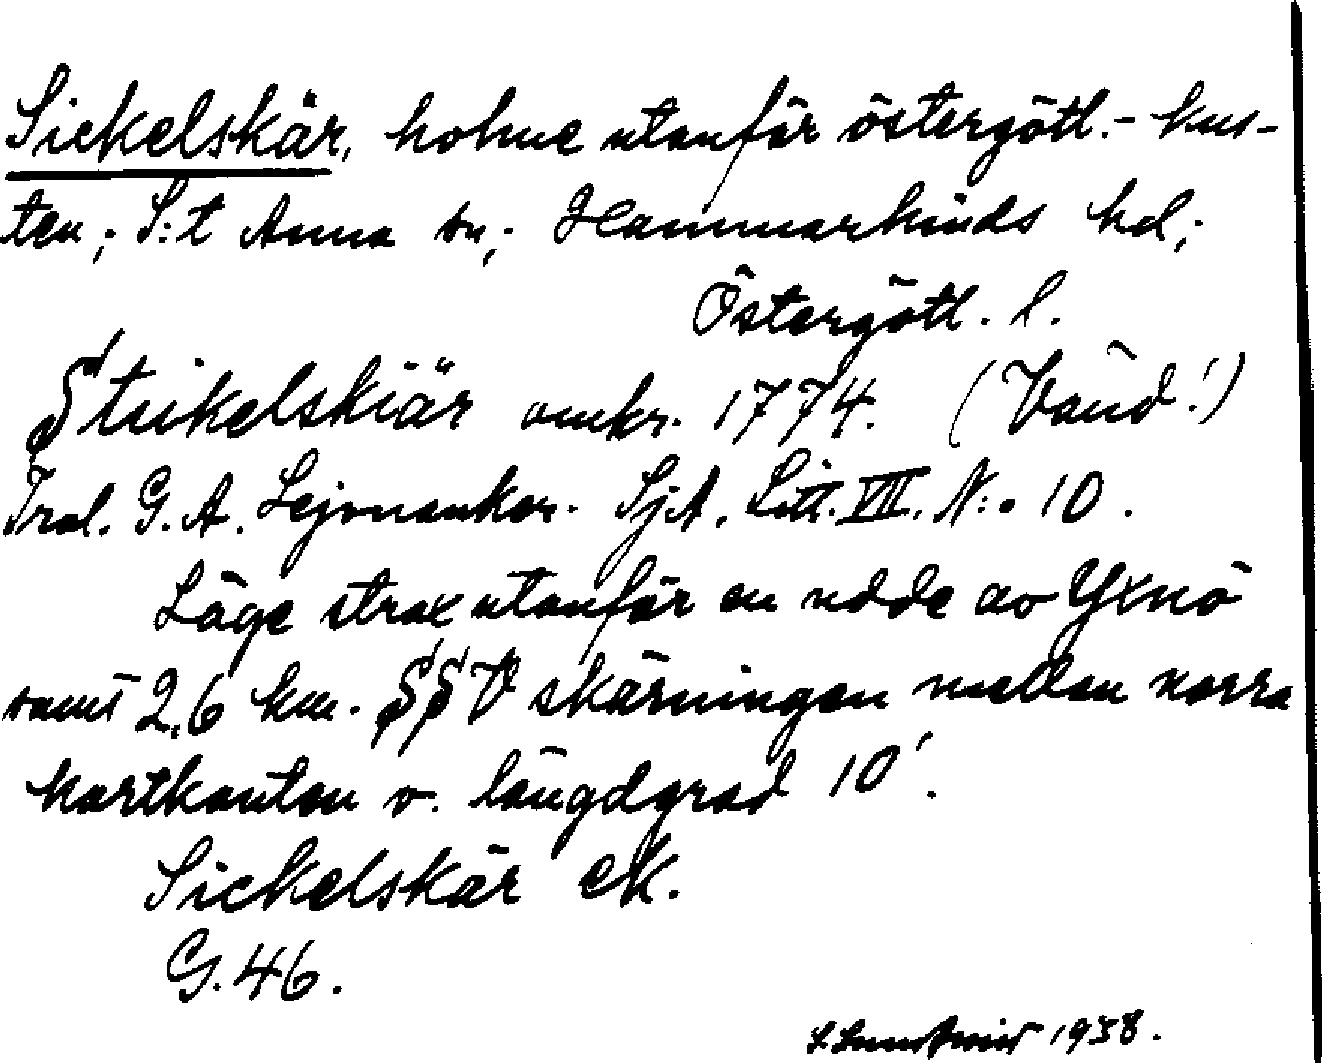 Sickelskär, holme utanför östergötl.- kus-
ten; S:t Anna sn; Hammarkinds hd;
Östergötl. l.
Stickelskiär omkr. 1774. (Vänd!)
Tral. G. A. Lejonanker. SjA. Litt. VII. N:o 10.
Läge strax utanför en udde av Yxnö
samt 2,6 km. SSV skärningen mellan norra
kartkanten o. längdgrad 10'.
Sickelskär ek.
G. 46.
1938.